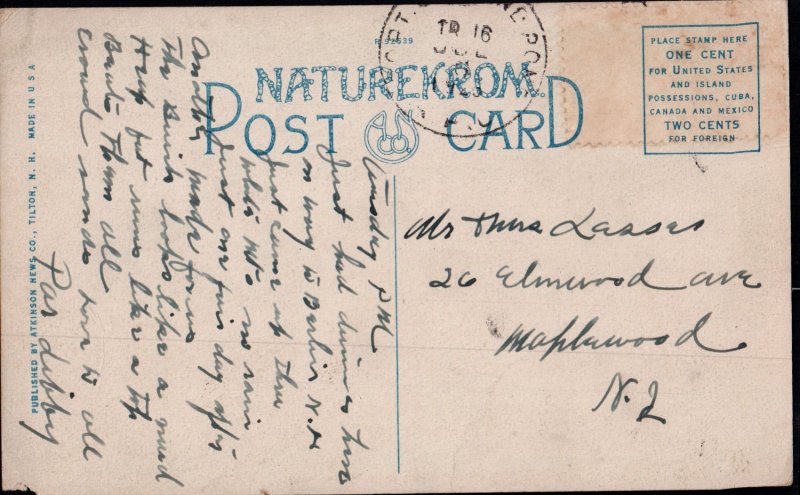 R-92639
TR 16
NATUREKROM
POST CARD
PLACE STAMP HERE
ONE CENT
FOR UNITED STATES
AND ISLAND
POSSESSIONS, CUBA,
CANADA AND MEXICO
TWO CENTS
FOR FOREIGN
PUBLISHED BY ATKINSON NEWS CO., TILTON, N. H. MADE IN U S A
Tuesday PM
Just had dinner here
on way to Berlin N.H
Just came up thru
White Mts no rain
Just one fine day after
Another made for us
The Buick looks like a mud
Heap but runs like a top
Beats Them all
crowd sends love to all
Par Libby
Mr Thos Lasses
26 Elmwood ave
Maplewood
N.J